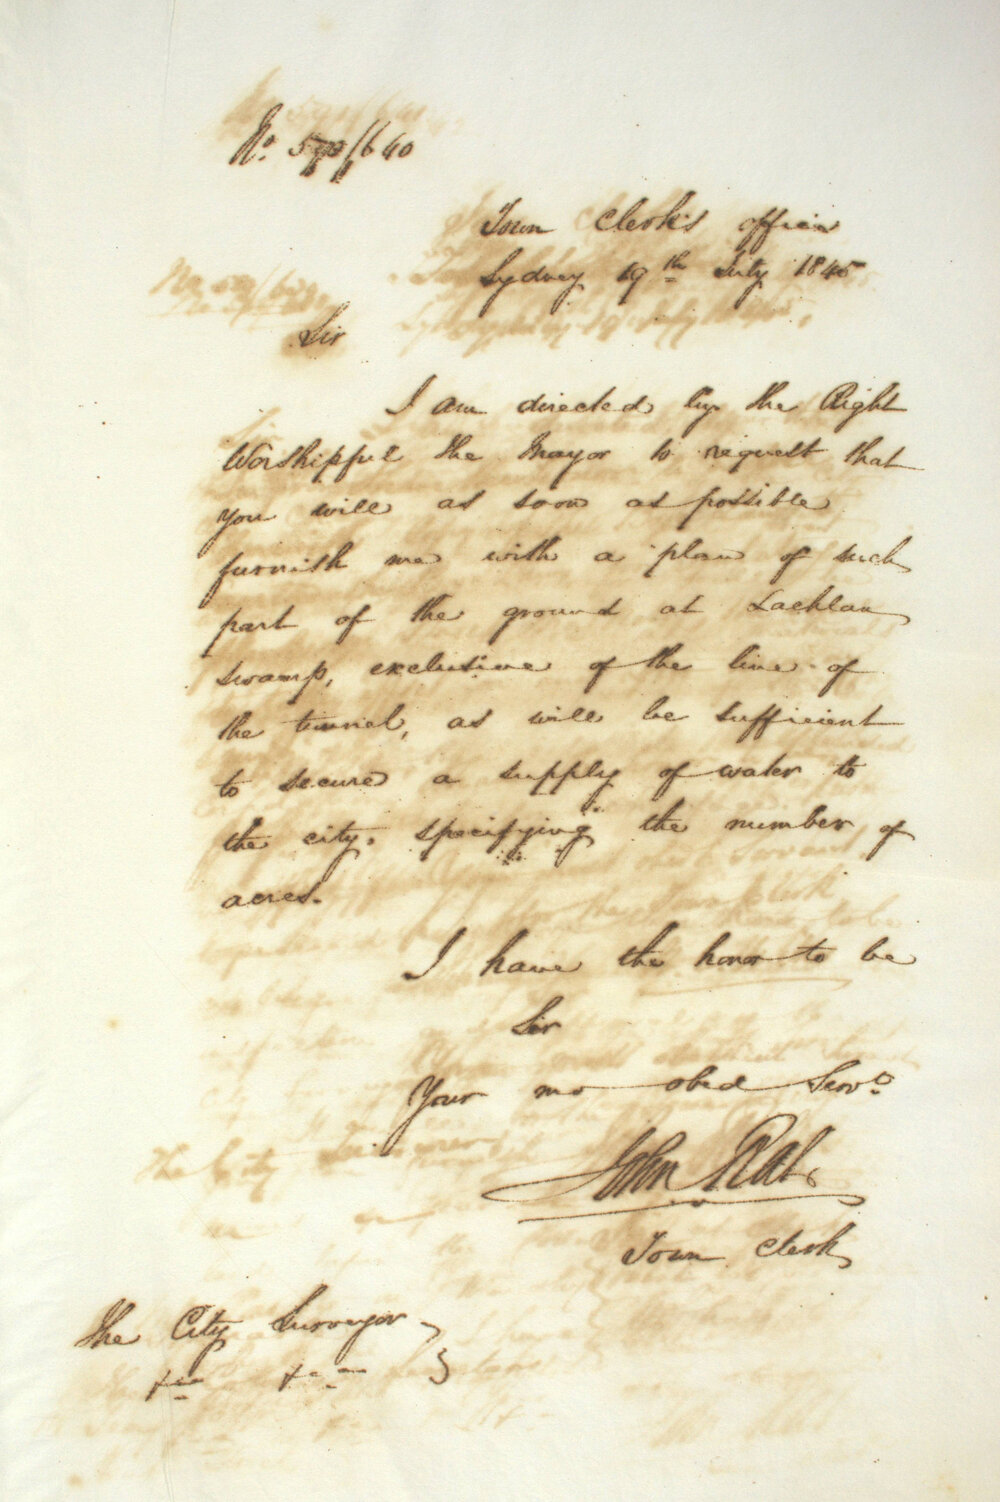 Town Clerk's office
Sydney 19th July 1845
Sir
I am directed by the Right
Worshipful the Mayor to request that
you will as soon as possible
furnish me with a plan of such
part of the ground at Lachlan
swamp, exclusive of the line of
the tunnel, as will be sufficient
to secure a supply of water to
the city, specifying the number of
acres.
I have the honor to be
Sir
Your mo obed Servt
John Rae
Town Clerk
The City Surveyor